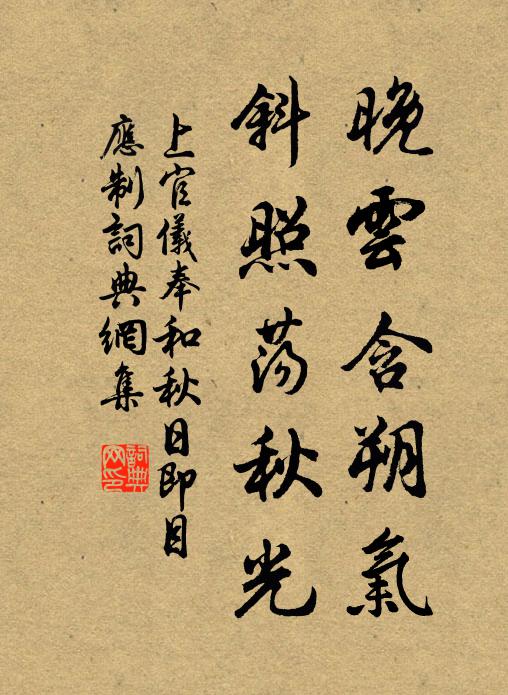 晚雲含朔氣
斜照蕩秋光
上官儀奉和秋日即目
應制詞典網集
詞典网印